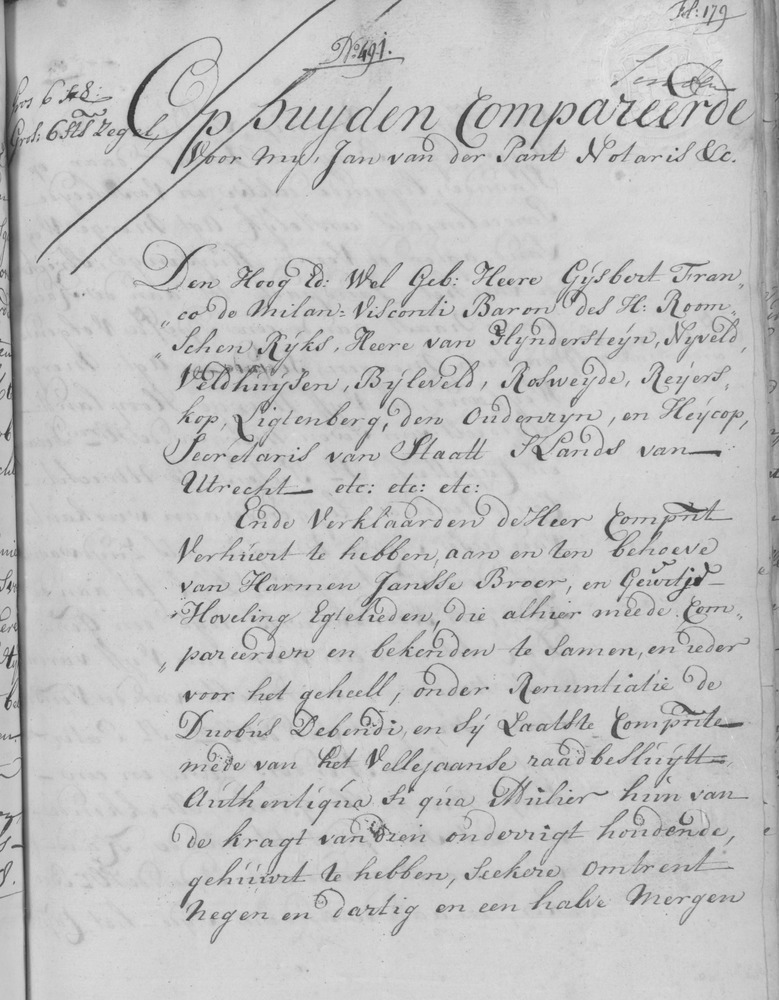 Fol: 179
No. 491.
Gros 6 st 8:
Gros: 6 sts Zegel,
Op huyden Compareerde
Voor my, Jan van der Pant Notaris &c.
Den Hoog Ed: Wel Geb: Heere Gÿsbert Fran„
„co de Milan=Visconti Baron des H: Room„
„schen Rÿks, Heere van Hÿndersteÿn, Nÿveld,
Veldhuÿsen, Bÿleveld, Rosweÿde, Reÿers„
kop, Ligtenberg, den Oudenrÿn, en Heÿcop,
Secretaris van Staatt 'sLands van
Utrecht etc: etc: etc:
Ende Verklaarden de Heer Comprt
Verhúúrt te hebben, aan en ten behoeve
van Harmen Jansse Broer, en Geurtje
Hoveling Egtelieden, die alhier meede Com„
„pareerden en bekenden te samen, en ieder
voor het geheell, onder Renuntiatie de
Duobus Debendi, en sÿ Laatste Comprte
mede van het Vellejaanse raadbesluÿtt,
Authentiqúa si qúa Múlier hún van
de kragt van dien onderrigt houdende,
gehúúrt te hebben, seekere omtrent
Negen en dartig en een halve Mergen